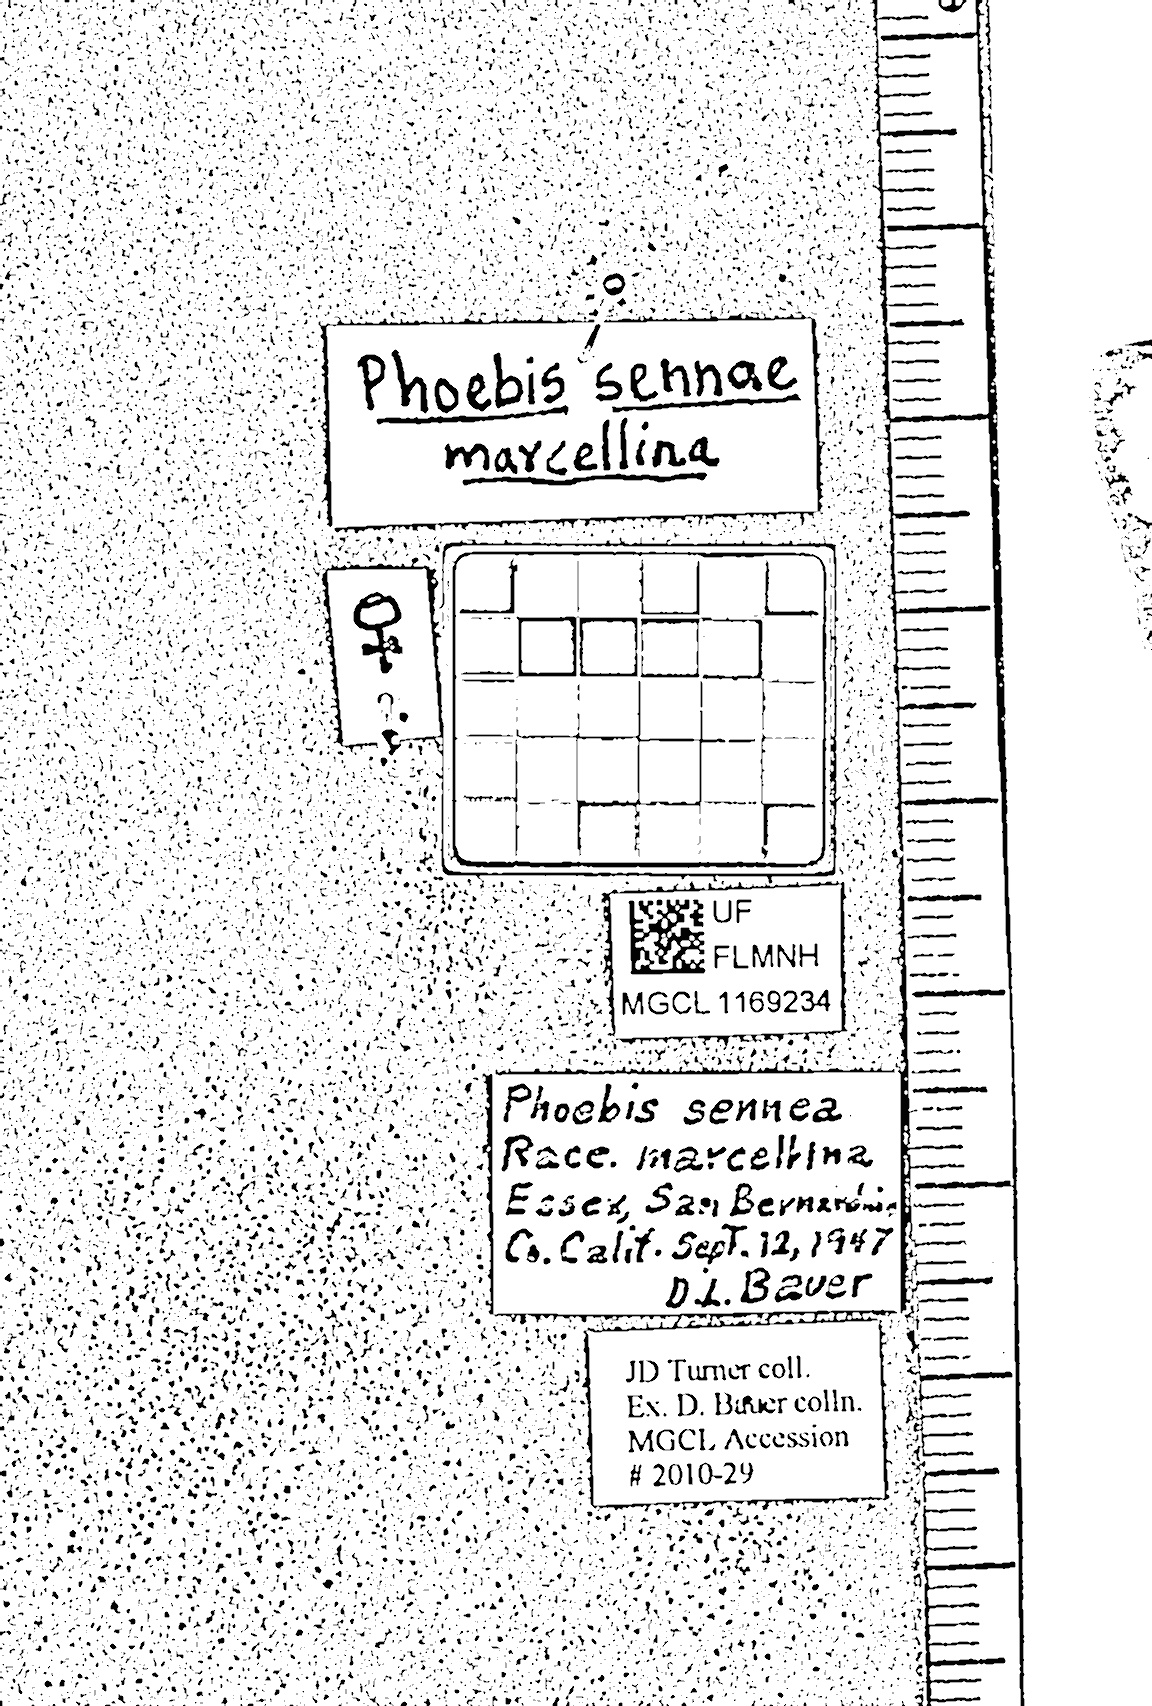 Phoebis sennae
marcellina
♀
UF
FLMNH
MGCL 1169234
Phoebis sennea
Race. marcellina
Essex, San Bernardin
Co. Calif. Sept. 12, 1947
D.L. Bauer
JD Turner coll.
Ex. D. Bauer colln.
MGCL Accession
# 2010-29